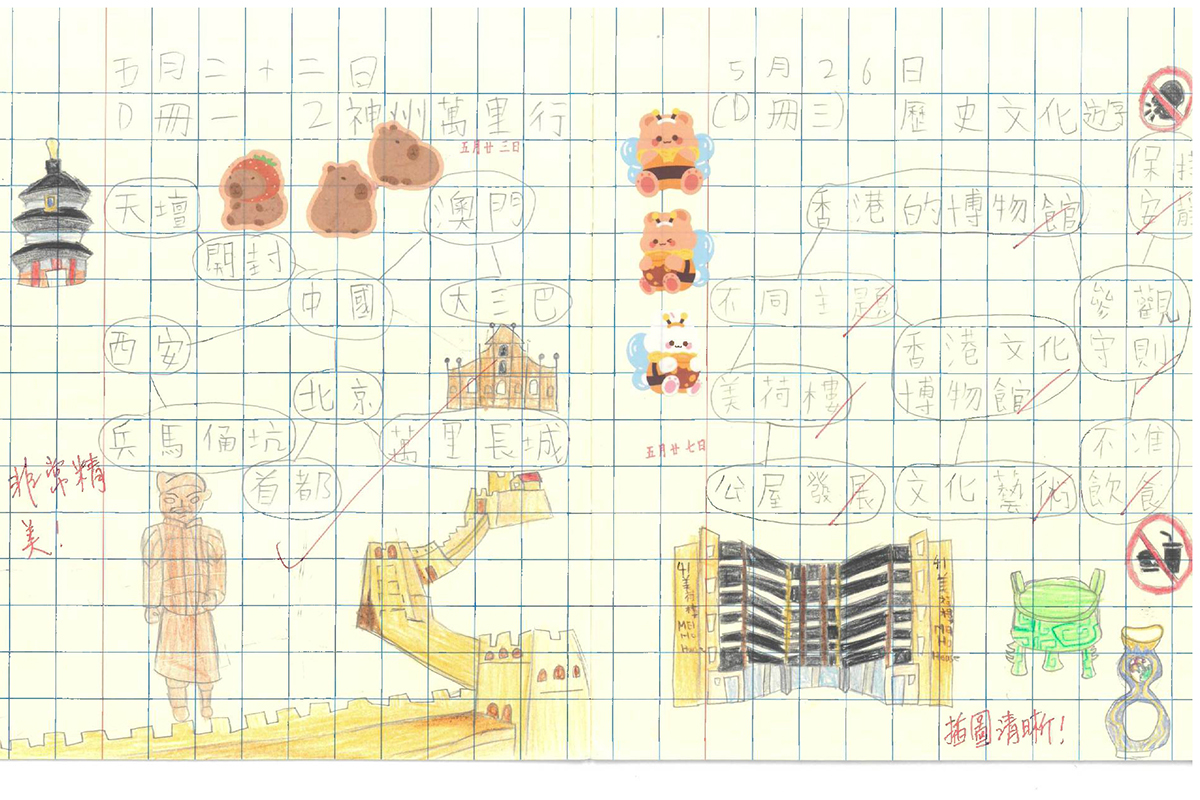 五月二十二日
D冊一 2神州萬里行
五月廿三日
天壇
澳門
開封
中國
大三巴
西安
北京
兵馬俑坑
萬里長城
首都
非常精
美！
5月26日
(D冊三) 歷史文化遊
保持
安靜
香港的博物館
不同主題
參觀
守則
香港文化
博物館
美荷樓
不准
飲食
五月廿七日
公屋發展
文化藝術
41
美荷樓
MEI
HO
House
41
美荷樓
MEI
HO
House
插圖清晰！